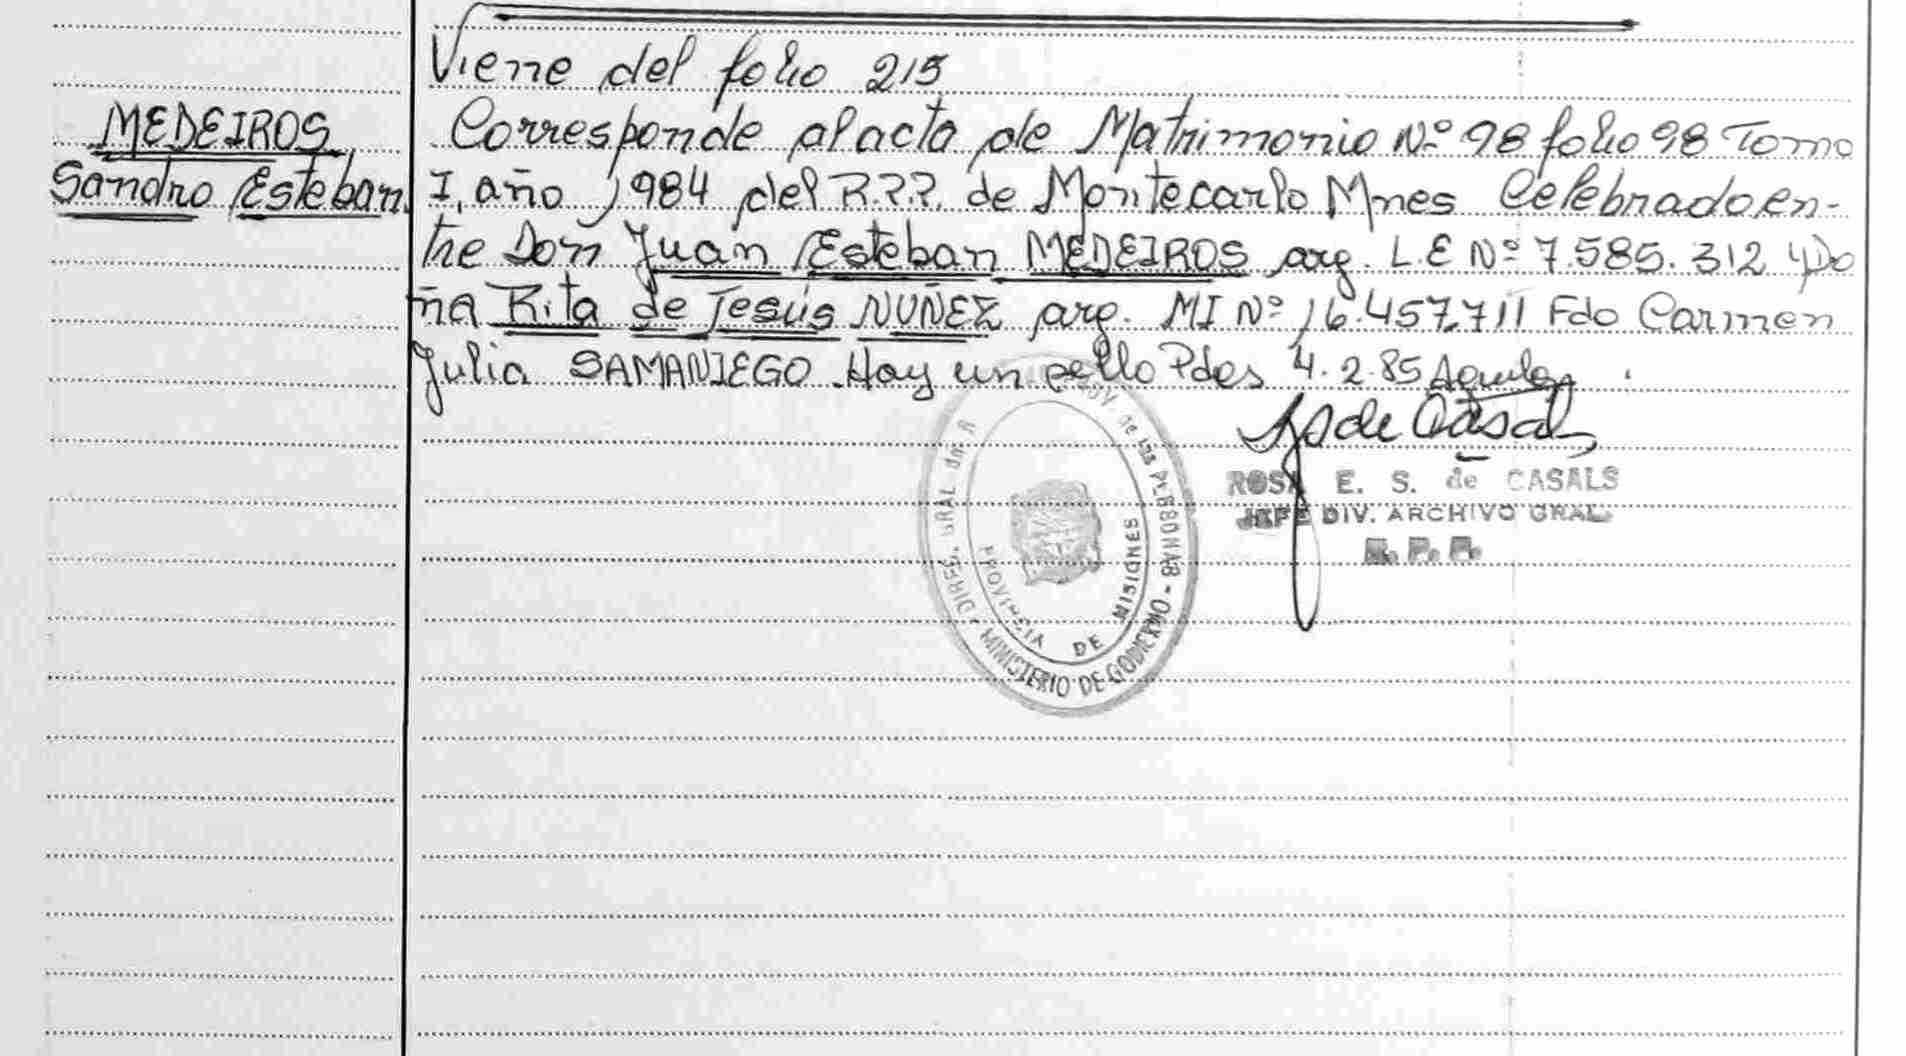 Viene del folio 215
MEDEIROS
Sandro Esteban
Corresponde al acta de Matrimonio Nº 98 folio 98 Tomo
I, año 1984 del R.P.P. de Montecarlo Mnes Celebrado en-
tre Don Juan Esteban MEDEIROS arg. L.E Nº 7.585.312 y Do
ña Rita de Jesús NUÑEZ arg. MI Nº 16.457.711 Fdo Carmen
Julia SAMANIEGO. Hay un sello Pdas 4.2.85
S de Casals
ROSA E. S. de CASALS
JEFE DIV. ARCHIVO GRAL.
R. P. P.
DIREC. GRAL de R PROV. de las PERSONAS - MINISTERIO DE GOBIERNO -
PROVINCIA DE MISIONES